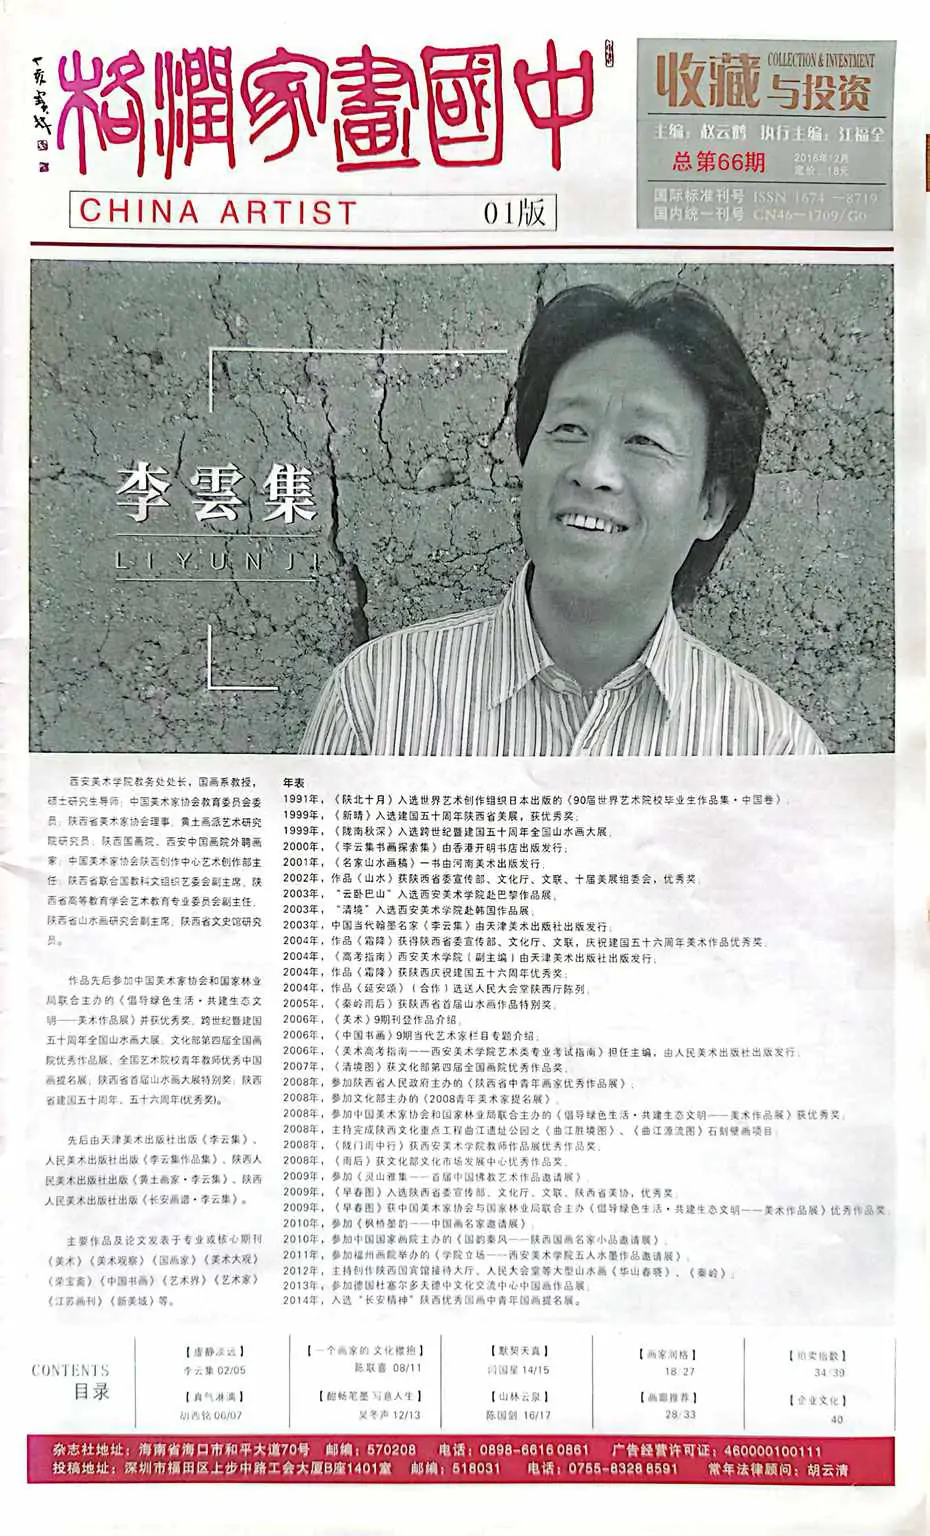 中國畫家潤格
CHINA ARTIST
01版
收藏
与投资
COLLECTION & INVESTMENT
主编：赵云鹤 执行主编：江福全
总第66期
2016年12月
定价：18元
国际标准刊号 ISSN 1674－8719
国内统一刊号 CN46－1709/G0
李雲集
LI YUNJI
西安美术学院教务处处长，国画系教授，
硕士研究生导师；中国美术家协会教育委员会委
员；陕西省美术家协会理事；黄土画派艺术研究
院研究员；陕西国画院、西安中国画院外聘画
家；中国美术家协会陕西创作中心艺术创作部主
任；陕西省联合国教科文组织艺委会副主席；陕
西省高等教育学会艺术教育专业委员会副主任；
陕西省山水画研究会副主席；陕西省文史馆研究
员。
作品先后参加中国美术家协会和国家林业
局联合主办的《倡导绿色生活·共建生态文
明——美术作品展》并获优秀奖，跨世纪暨建国
五十周年全国山水画大展，文化部第四届全国画
院优秀作品展，全国艺术院校青年教师优秀中国
画提名展，陕西省首届山水画大展特别奖；陕西
省建国五十周年、五十六周年(优秀奖)。
先后由天津美术出版社出版《李云集》、
人民美术出版社出版《李云集作品集》、陕西人
民美术出版社出版《黄土画家·李云集》、陕西
人民美术出版社出版《长安画谱·李云集》。
主要作品及论文发表于专业或核心期刊
《美术》《美术观察》《国画家》《美术大观》
《荣宝斋》《中国书画》《艺术界》《艺术家》
《江苏画刊》《新美域》等。
年表
1991年，《陕北十月》入选世界艺术创作组织日本出版的《90届世界艺术院校毕业生作品集·中国卷》；
1999年，《新晴》入选建国五十周年陕西省美展，获优秀奖；
1999年，《陇南秋深》入选跨世纪暨建国五十周年全国山水画大展；
2000年，《李云集书画探索集》由香港开明书店出版发行；
2001年，《名家山水画稿》一书由河南美术出版发行；
2002年，作品《山水》获陕西省委宣传部、文化厅、文联、十届美展组委会，优秀奖；
2003年，“云卧巴山”入选西安美术学院赴巴黎作品展；
2003年，“清境”入选西安美术学院赴韩国作品展；
2003年，中国当代翰墨名家《李云集》由天津美术出版社出版发行；
2004年，作品《霜降》获得陕西省委宣传部、文化厅、文联，庆祝建国五十六周年美术作品优秀奖；
2004年，《高考指南》西安美术学院（副主编）由天津美术出版社出版发行；
2004年，作品《霜降》获陕西庆祝建国五十六周年优秀奖；
2004年，作品《延安颂》（合作）选送人民大会堂陕西厅陈列；
2005年，《秦岭雨后》获陕西省首届山水画作品特别奖；
2006年，《美术》9期刊登作品介绍；
2006年，《中国书画》9期当代艺术家栏目专题介绍；
2006年，《美术高考指南——西安美术学院艺术类专业考试指南》担任主编，由人民美术出版社出版发行；
2007年，《清境图》获文化部第四届全国画院优秀作品奖；
2008年，参加陕西省人民政府主办的《陕西省中青年画家优秀作品展》；
2008年，参加文化部主办的《2008青年美术家提名展》；
2008年，参加中国美术家协会和国家林业局联合主办的《倡导绿色生活·共建生态文明——美术作品展》获优秀奖；
2008年，主持完成陕西文化重点工程曲江遗址公园之《曲江胜境图》、《曲江源流图》石刻壁画项目；
2008年，《陇门雨中行》获西安美术学院教师作品展优秀作品奖；
2008年，《雨后》获文化部文化市场发展中心优秀作品奖；
2009年，参加《灵山雅集——首届中国佛教艺术作品邀请展》；
2009年，《早春图》入选陕西省委宣传部、文化厅、文联、陕西省美协，优秀奖；
2009年，《早春图》获中国美术家协会与国家林业局联合主办《倡导绿色生活·共建生态文明——美术作品展》优秀作品奖；
2010年，参加《枫桥墨韵——中国画名家邀请展》；
2010年，参加中国国家画院主办的《国韵秦风——陕西国画名家小品邀请展》；
2011年，参加福州画院举办的《学院立场——西安美术学院五人水墨作品邀请展》；
2012年，主持创作陕西国宾馆接待大厅、人民大会堂等大型山水画《华山春晓》、《秦岭》；
2013年，参加德国杜塞尔多夫德中文化交流中心中国画作品展；
2014年，入选“长安精神”陕西优秀国画中青年国画提名展。
CONTENTS
目录
【虚静淡远】
李云集 02/05
【真气淋漓】
胡西铭 06/07
【一个画家的文化襟抱】
陈联喜 08/11
【酣畅笔墨 写意人生】
吴冬声 12/13
【默契天真】
闫国星 14/15
【山林云泉】
陈国剑 16/17
【画家润格】
18/27
【画廊推荐】
28/33
【拍卖指数】
34/39
【企业文化】
40
杂志社地址：海南省海口市和平大道70号 邮编：570208 电话：0898-6616 0861 广告经营许可证：460000100111
投稿地址：深圳市福田区上步中路工会大厦B座1401室 邮编：518031 电话：0755-8328 8591 常年法律顾问：胡云清